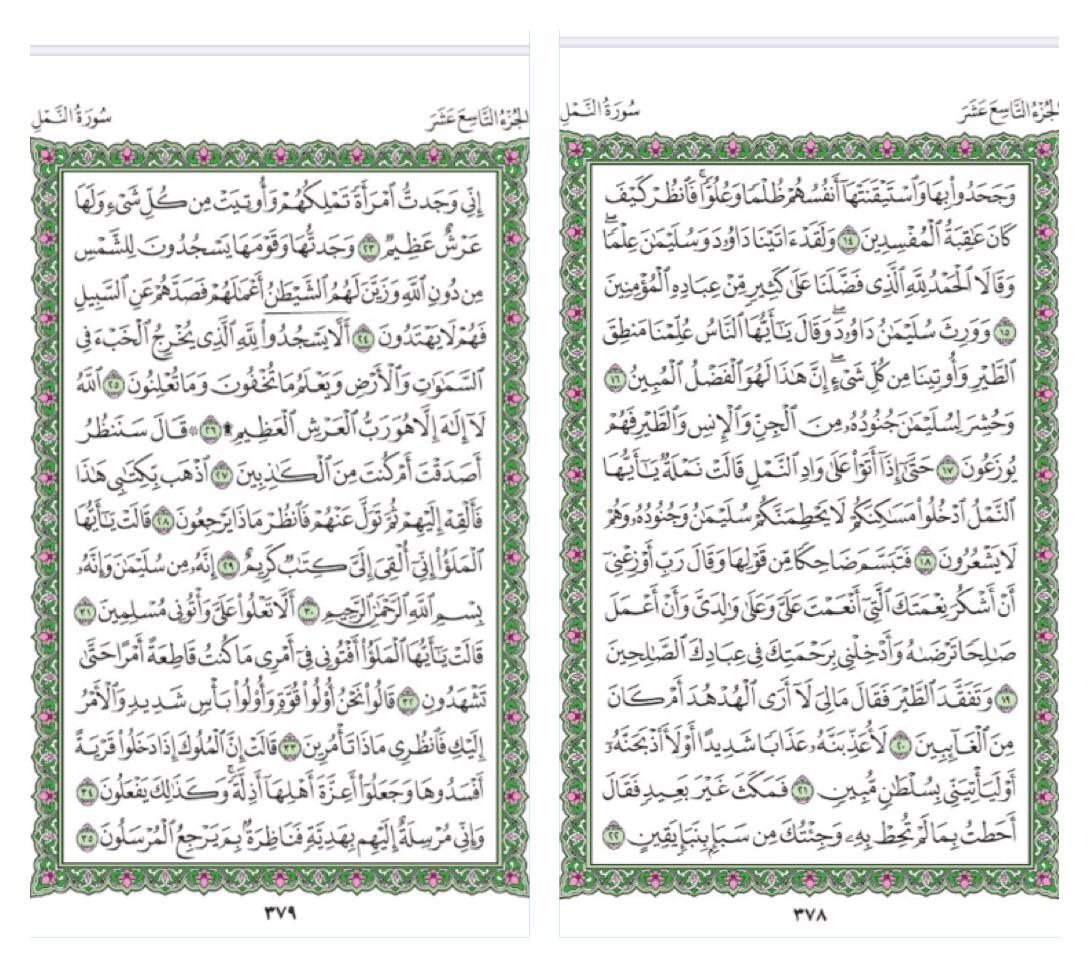 الجُزْءُ التَّاسِعَ عَشَرَ
سُورَةُ النَّمْلِ
وَجَحَدُوا۟ بِهَا وَٱسْتَيْقَنَتْهَآ أَنفُسُهُمْ ظُلْمًا وَعُلُوًّا ۚ فَٱنظُرْ كَيْفَ
كَانَ عَٰقِبَةُ ٱلْمُفْسِدِينَ ١٤ وَلَقَدْ ءَاتَيْنَا دَاوُۥدَ وَسُلَيْمَٰنَ عِلْمًا ۖ
وَقَالَا ٱلْحَمْدُ لِلَّهِ ٱلَّذِى فَضَّلَنَا عَلَىٰ كَثِيرٍ مِّنْ عِبَادِهِ ٱلْمُؤْمِنِينَ
١٥ وَوَرِثَ سُلَيْمَٰنُ دَاوُۥدَ ۖ وَقَالَ يَٰٓأَيُّهَا ٱلنَّاسُ عُلِّمْنَا مَنطِقَ
ٱلطَّيْرِ وَأُوتِينَا مِن كُلِّ شَىْءٍ ۖ إِنَّ هَٰذَا لَهُوَ ٱلْفَضْلُ ٱلْمُبِينُ ١٦
وَحُشِرَ لِسُلَيْمَٰنَ جُنُودُهُۥ مِنَ ٱلْجِنِّ وَٱلْإِنسِ وَٱلطَّيْرِ فَهُمْ
يُوزَعُونَ ١٧ حَتَّىٰٓ إِذَآ أَتَوْا۟ عَلَىٰ وَادِ ٱلنَّمْلِ قَالَتْ نَمْلَةٌ يَٰٓأَيُّهَا
ٱلنَّمْلُ ٱدْخُلُوا۟ مَسَٰكِنَكُمْ لَا يَحْطِمَنَّكُمْ سُلَيْمَٰنُ وَجُنُودُهُۥ وَهُمْ
لَا يَشْعُرُونَ ١٨ فَتَبَسَّمَ ضَاحِكًا مِّن قَوْلِهَا وَقَالَ رَبِّ أَوْزِعْنِىٓ
أَنْ أَشْكُرَ نِعْمَتَكَ ٱلَّتِىٓ أَنْعَمْتَ عَلَىَّ وَعَلَىٰ وَٰلِدَىَّ وَأَنْ أَعْمَلَ
صَٰلِحًا تَرْضَىٰهُ وَأَدْخِلْنِى بِرَحْمَتِكَ فِى عِبَادِكَ ٱلصَّٰلِحِينَ
١٩ وَتَفَقَّدَ ٱلطَّيْرَ فَقَالَ مَالِىَ لَآ أَرَى ٱلْهُدْهُدَ أَمْ كَانَ
مِنَ ٱلْغَآئِبِينَ ٢٠ لَأُعَذِّبَنَّهُۥ عَذَابًا شَدِيدًا أَوْ لَأَا۟ذْبَحَنَّهُۥٓ
أَوْ لَيَأْتِيَنِّى بِسُلْطَٰنٍ مُّبِينٍ ٢١ فَمَكَثَ غَيْرَ بَعِيدٍ فَقَالَ
أَحَطتُ بِمَا لَمْ تُحِطْ بِهِۦ وَجِئْتُكَ مِن سَبَإٍۭ بِنَبَإٍ يَقِينٍ ٢٢
٣٧٨
الجُزْءُ التَّاسِعَ عَشَرَ
سُورَةُ النَّمْلِ
إِنِّى وَجَدتُّ ٱمْرَأَةً تَمْلِكُهُمْ وَأُوتِيَتْ مِن كُلِّ شَىْءٍ وَلَهَا
عَرْشٌ عَظِيمٌ ٢٣ وَجَدتُّهَا وَقَوْمَهَا يَسْجُدُونَ لِلشَّمْسِ
مِن دُونِ ٱللَّهِ وَزَيَّنَ لَهُمُ ٱلشَّيْطَٰنُ أَعْمَٰلَهُمْ فَصَدَّهُمْ عَنِ ٱلسَّبِيلِ
فَهُمْ لَا يَهْتَدُونَ ٢٤ أَلَّا يَسْجُدُوا۟ لِلَّهِ ٱلَّذِى يُخْرِجُ ٱلْخَبْءَ فِى
ٱلسَّمَٰوَٰتِ وَٱلْأَرْضِ وَيَعْلَمُ مَا تُخْفُونَ وَمَا تُعْلِنُونَ ٢٥ ٱللَّهُ
لَآ إِلَٰهَ إِلَّا هُوَ رَبُّ ٱلْعَرْشِ ٱلْعَظِيمِ ۩ ٢٦ ۞ قَالَ سَنَنظُرُ
أَصَدَقْتَ أَمْ كُنتَ مِنَ ٱلْكَٰذِبِينَ ٢٧ ٱذْهَب بِّكِتَٰبِى هَٰذَا
فَأَلْقِهْ إِلَيْهِمْ ثُمَّ تَوَلَّ عَنْهُمْ فَٱنظُرْ مَاذَا يَرْجِعُونَ ٢٨ قَالَتْ يَٰٓأَيُّهَا
ٱلْمَلَؤُا۟ إِنِّىٓ أُلْقِىَ إِلَىَّ كِتَٰبٌ كَرِيمٌ ٢٩ إِنَّهُۥ مِن سُلَيْمَٰنَ وَإِنَّهُۥ
بِسْمِ ٱللَّهِ ٱلرَّحْمَٰنِ ٱلرَّحِيمِ ٣٠ أَلَّا تَعْلُوا۟ عَلَىَّ وَأْتُونِى مُسْلِمِينَ ٣١
قَالَتْ يَٰٓأَيُّهَا ٱلْمَلَؤُا۟ أَفْتُونِى فِىٓ أَمْرِى مَا كُنتُ قَاطِعَةً أَمْرًا حَتَّىٰ
تَشْهَدُونِ ٣٢ قَالُوا۟ نَحْنُ أُو۟لُوا۟ قُوَّةٍ وَأُو۟لُوا۟ بَأْسٍ شَدِيدٍ وَٱلْأَمْرُ
إِلَيْكِ فَٱنظُرِى مَاذَا تَأْمُرِينَ ٣٣ قَالَتْ إِنَّ ٱلْمُلُوكَ إِذَا دَخَلُوا۟ قَرْيَةً
أَفْسَدُوهَا وَجَعَلُوٓا۟ أَعِزَّةَ أَهْلِهَآ أَذِلَّةً ۖ وَكَذَٰلِكَ يَفْعَلُونَ ٣٤
وَإِنِّى مُرْسِلَةٌ إِلَيْهِم بِهَدِيَّةٍ فَنَاظِرَةٌۢ بِمَ يَرْجِعُ ٱلْمُرْسَلُونَ ٣٥
٣٧٩